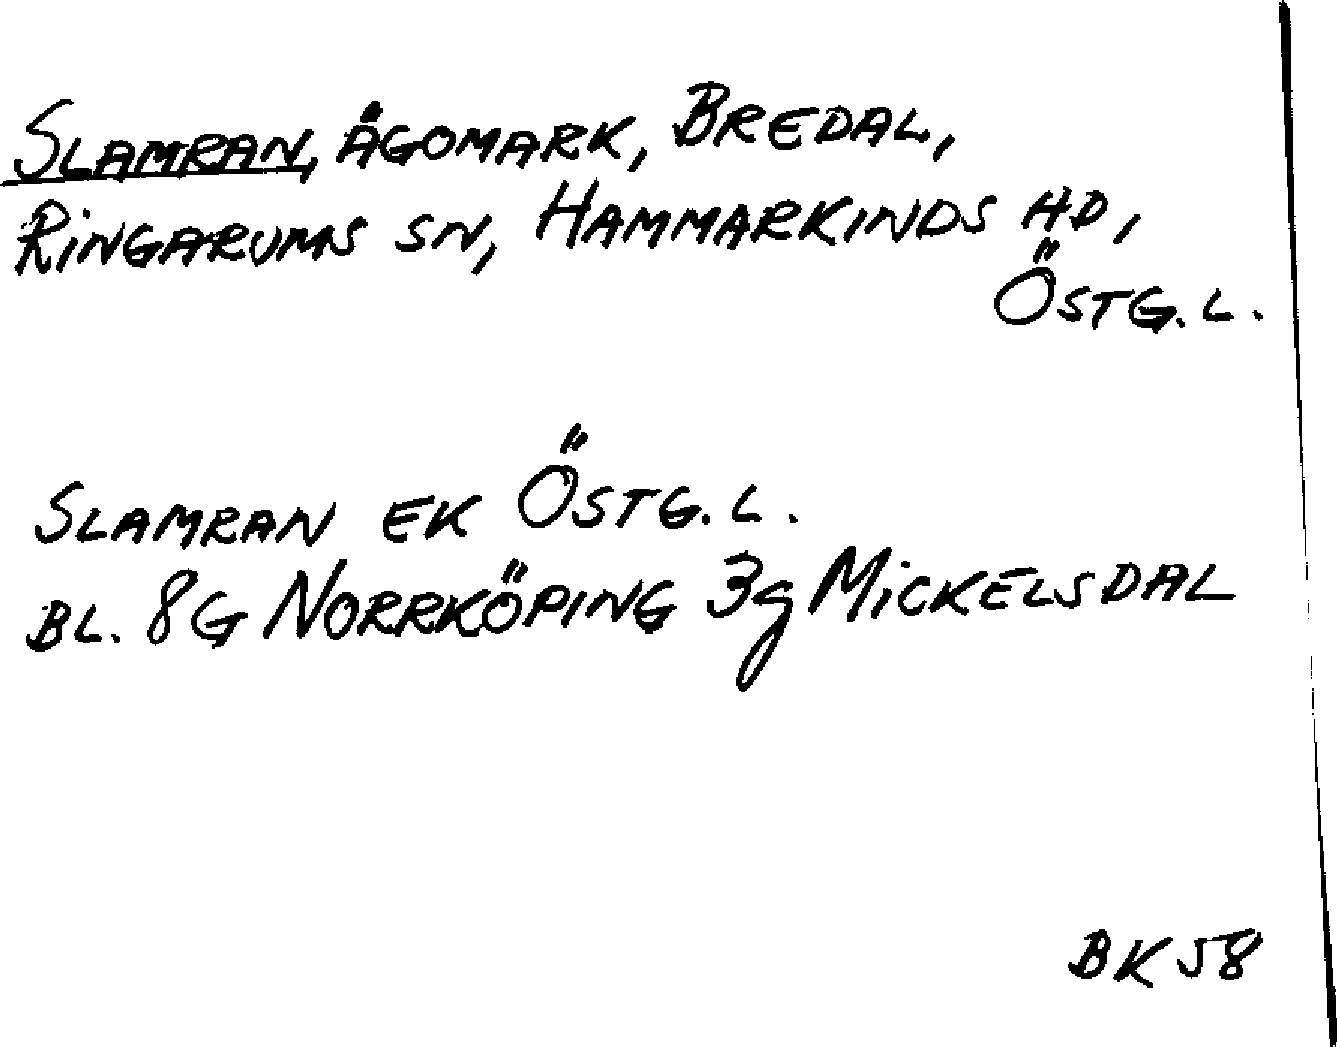 SLAMRAN, ÄGOMARK, BREDAL,
RINGARUMS SN, HAMMARKINDS HD,
ÖSTG. L.
SLAMRAN EK ÖSTG. L.
BL. 8G NORRKÖPING 3g MICKELSDAL
BK 58